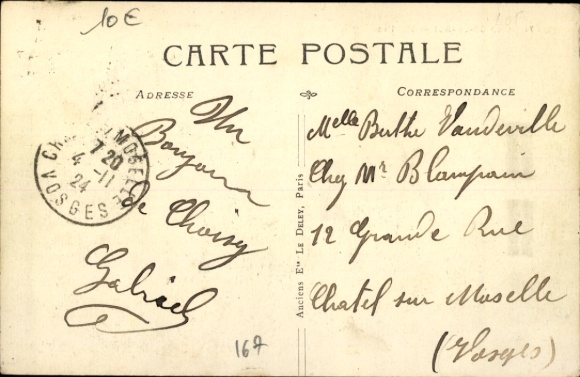 10€
CARTE POSTALE
ADRESSE
CORRESPONDANCE
Un
Bonjour
de Choisy
Gabriel
Melle Berthe Vaudeville
Chez Mr Blampain
12 Grande Rue
Chatel sur Moselle
(Vosges)
MOSELLE
7 20
4 -11
24
VOSGES
Anciens Ets LE DELEY, Paris
167